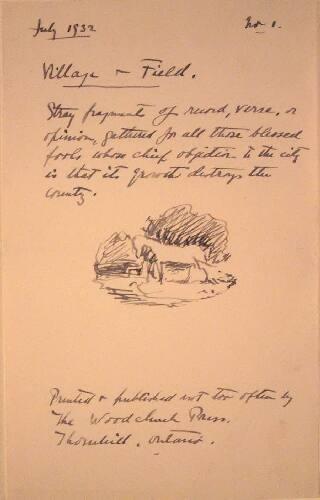 July 1932
No 1.
Village & Field.
Stray fragments of record, verse, or
opinion, gathered for all those blessed
fools whose chief objection to the city
is that its growth destroys the
country.
Printed & published not too often by
The Woodchuck Press.
Thornhill, Ontario.